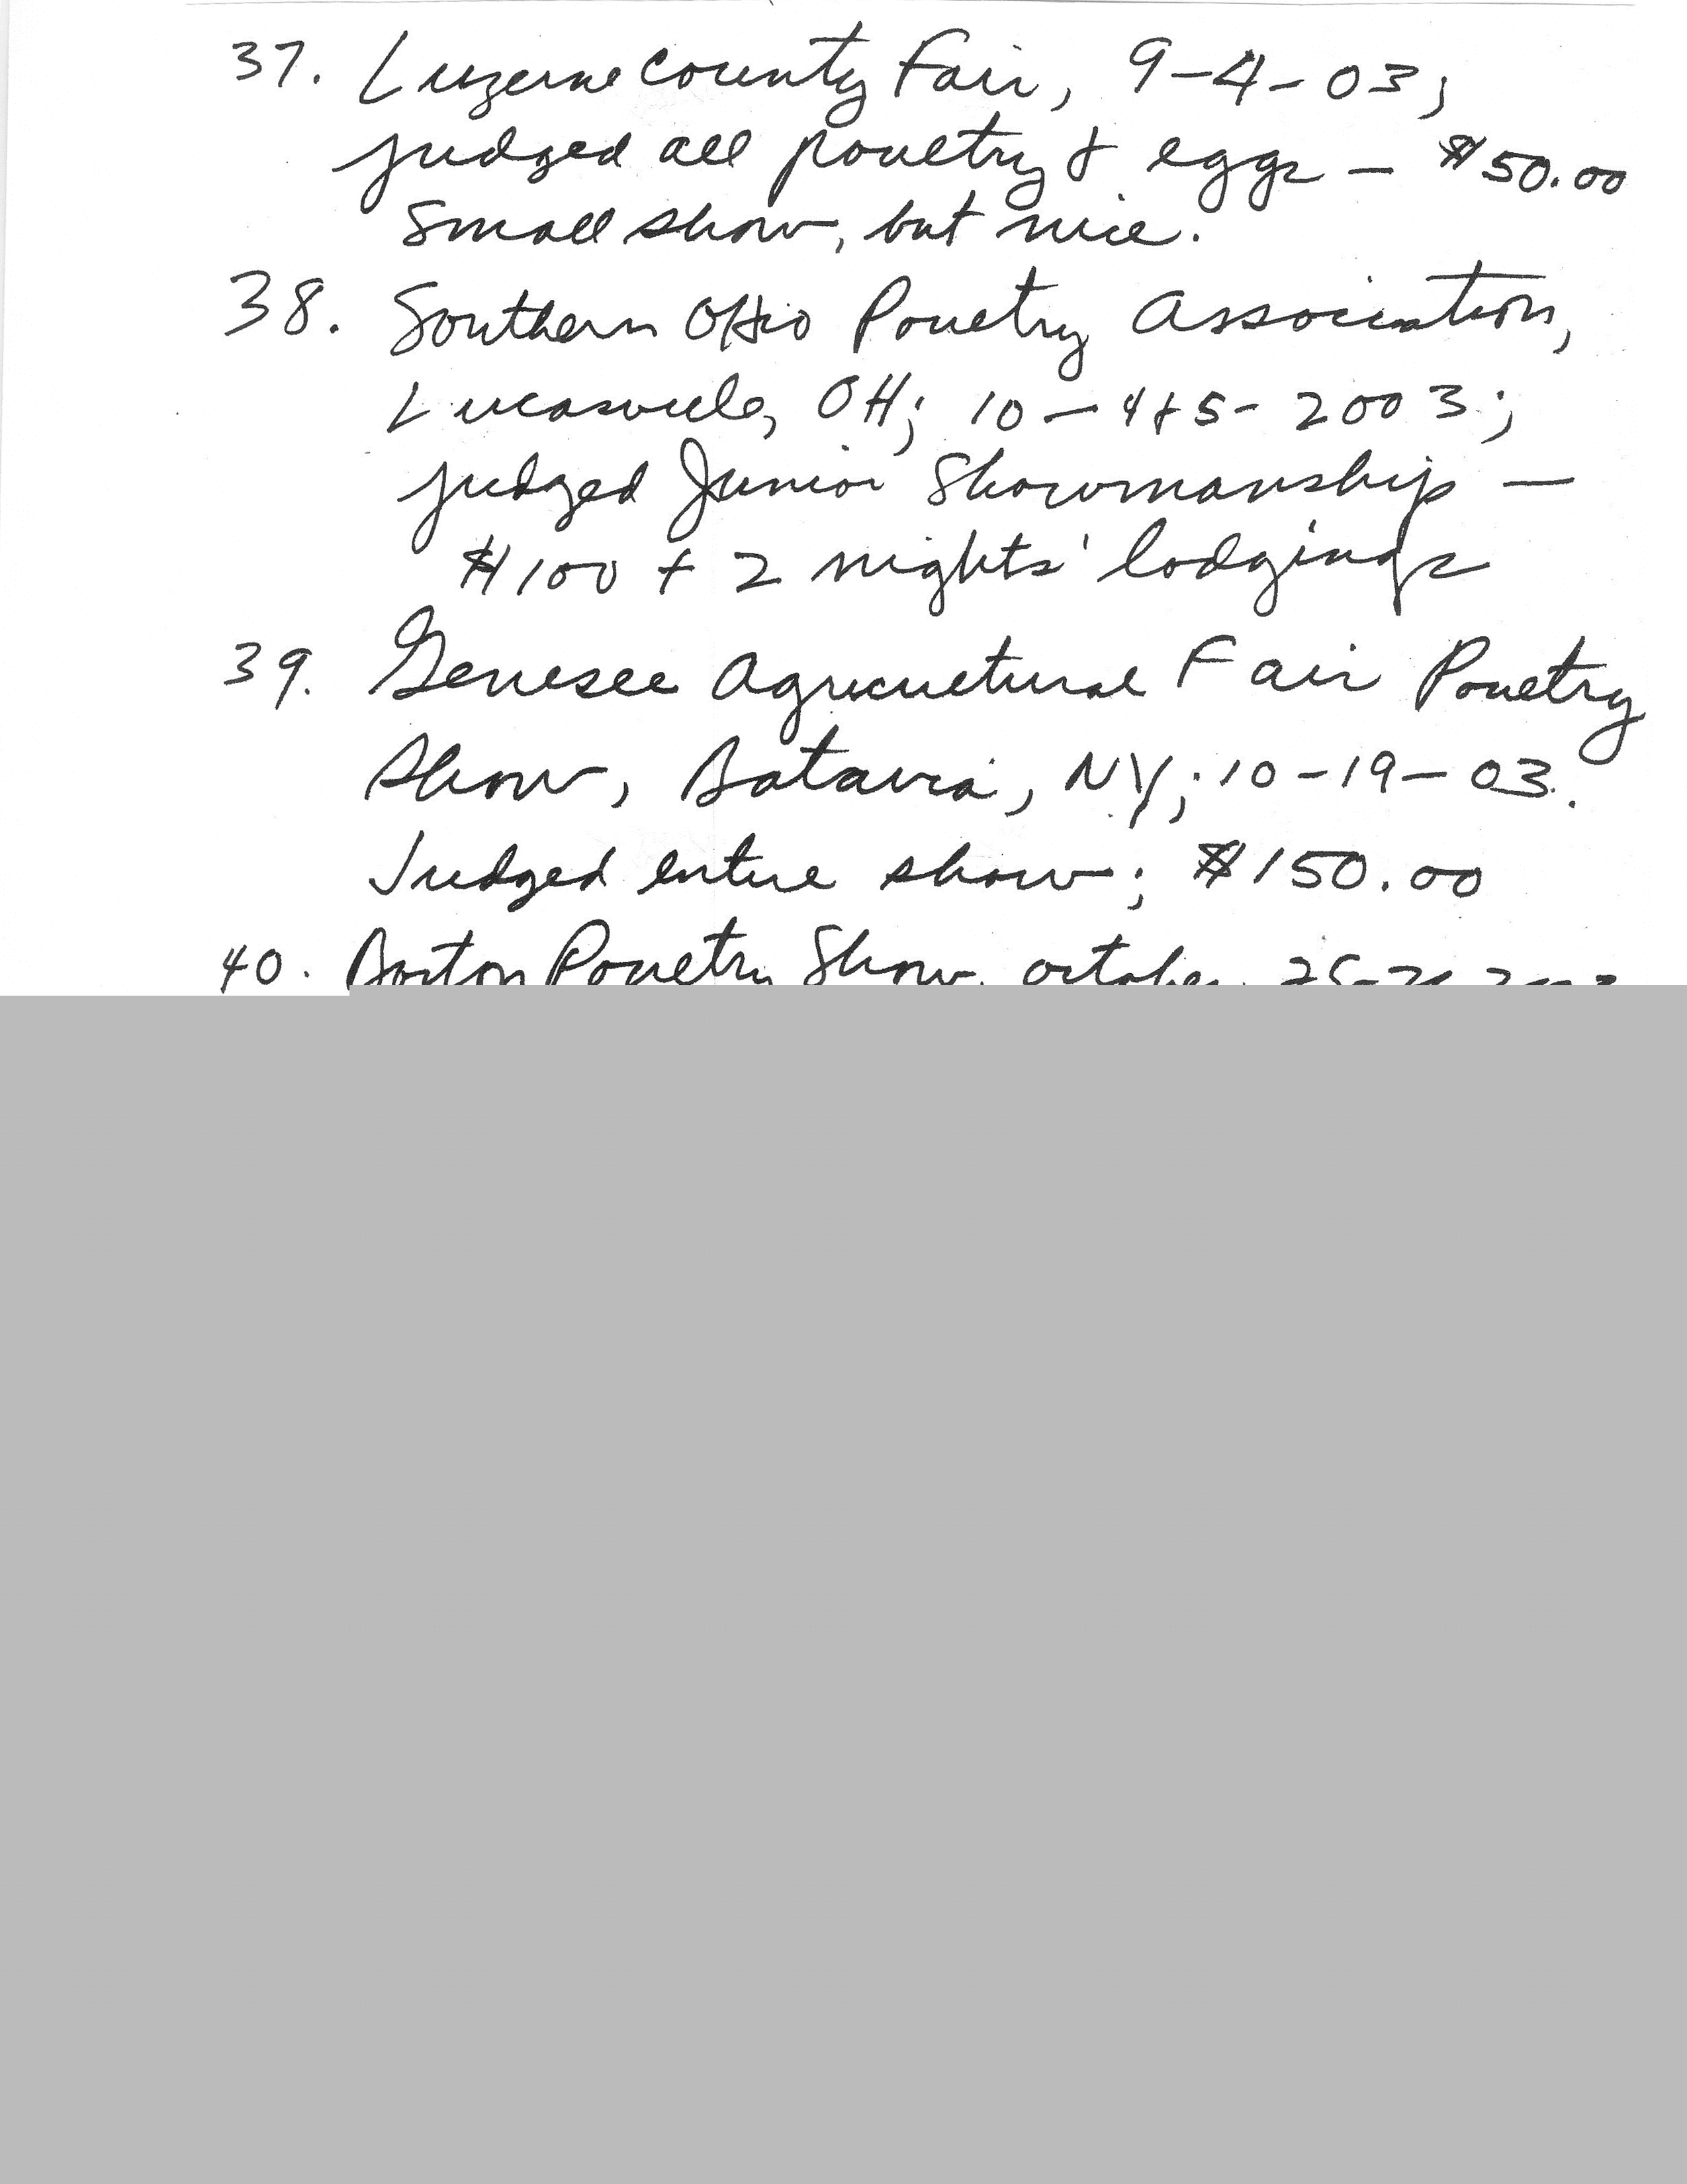 37. Luzerne County Fair, 9-4-03;
judged all poultry & eggs — $50.00
Small show, but nice.
38. Southern Ohio Poultry Association,
Lucasville, OH; 10-4+5-2003;
judged Junior Showmanship —
$100 + 2 nights' lodgings
39. Genesee Agricultural Fair Poultry
Show, Batavia, NY; 10-19-03.
Judged entire show; $150.00
40. Boston Poultry Show, October